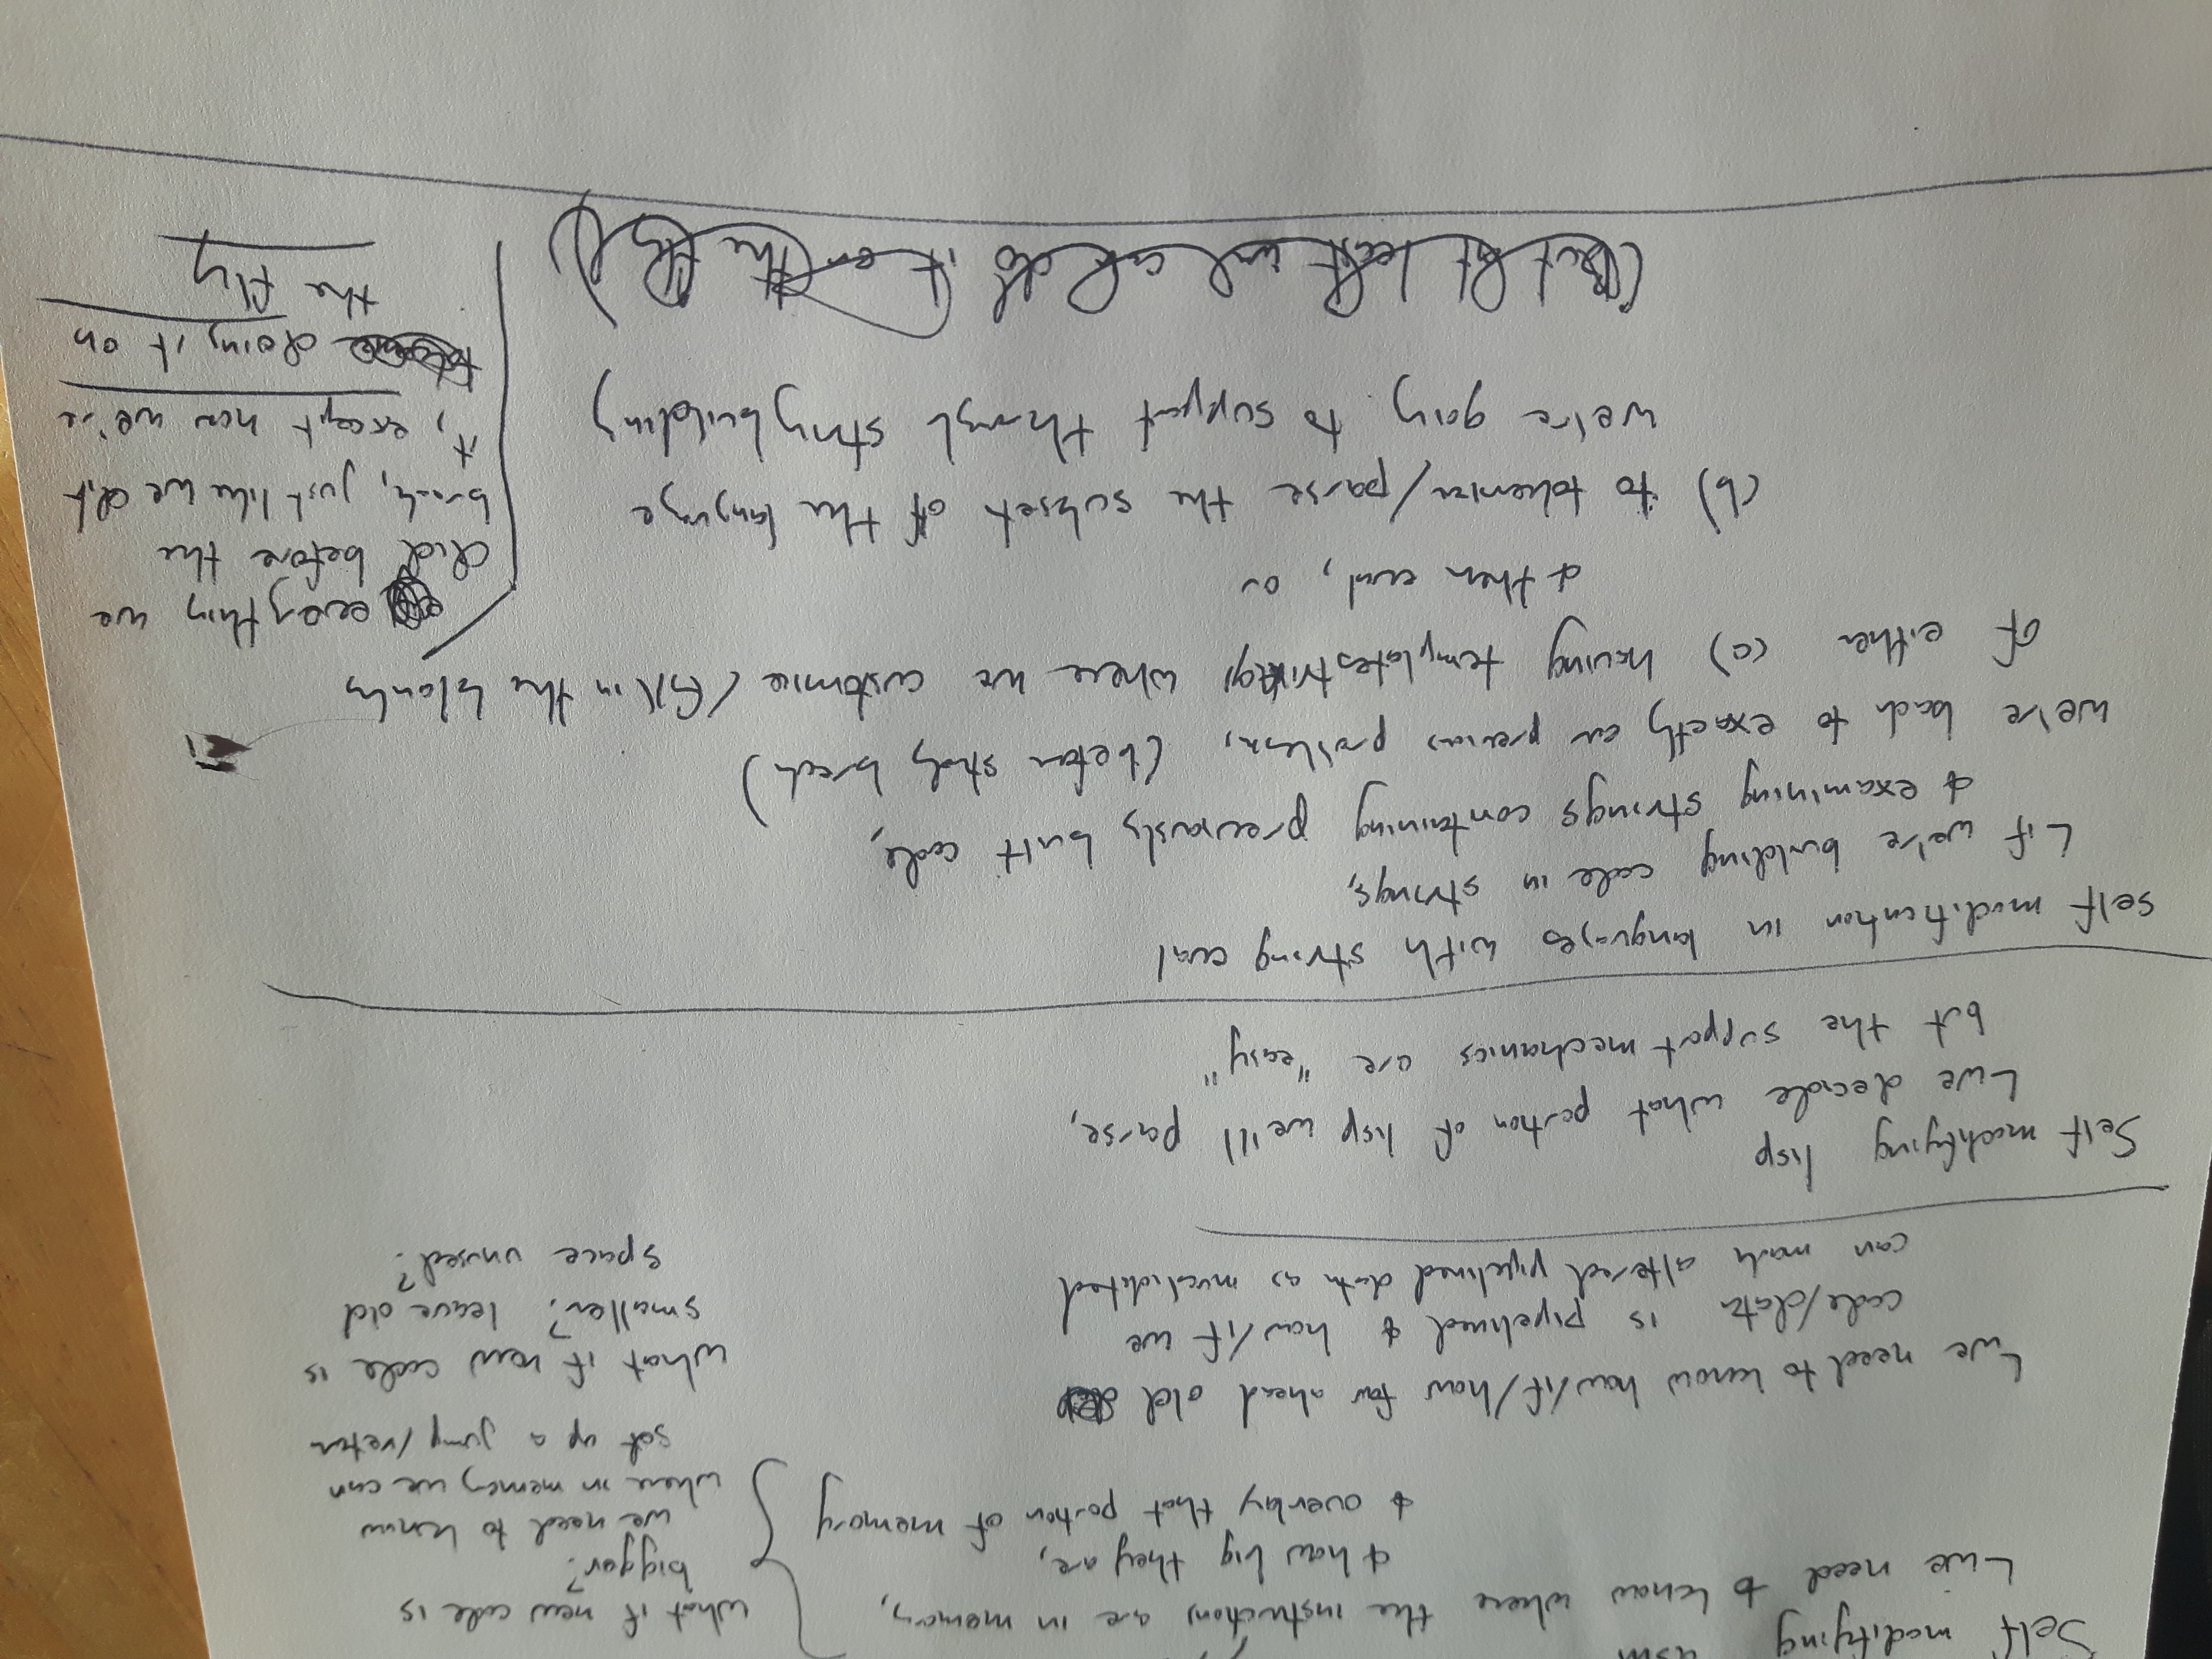 Self modifying asm
we need to know where the instructions are in memory,
& how big they are,
& overlay that portion of memory
what if new code is
bigger?
we need to know
where in memory we can
set up a jump/vector
what if new code is
smaller? leave old
space unused?
we need to know how/if/how far ahead old
code/data is pipelined & how/if we
can mark altered pipelined data as invalidated
Self modifying lisp
we decide what portion of lisp we'll parse,
but the support mechanics are "easy"
self modification in languages with string eval
if we're building code in strings,
& examining strings containing previously built code,
we're back to exactly our previous problem, (before study break)
of either (a) having template strings where we customize/fill in the blanks
& then eval, or
(b) to tokenize/parse the subset of the language
we're going to support through stringbuilding
(but at least we can do it on the fly)
everything we
did before the
break, just like we did
it, except now we're
doing it on
the fly